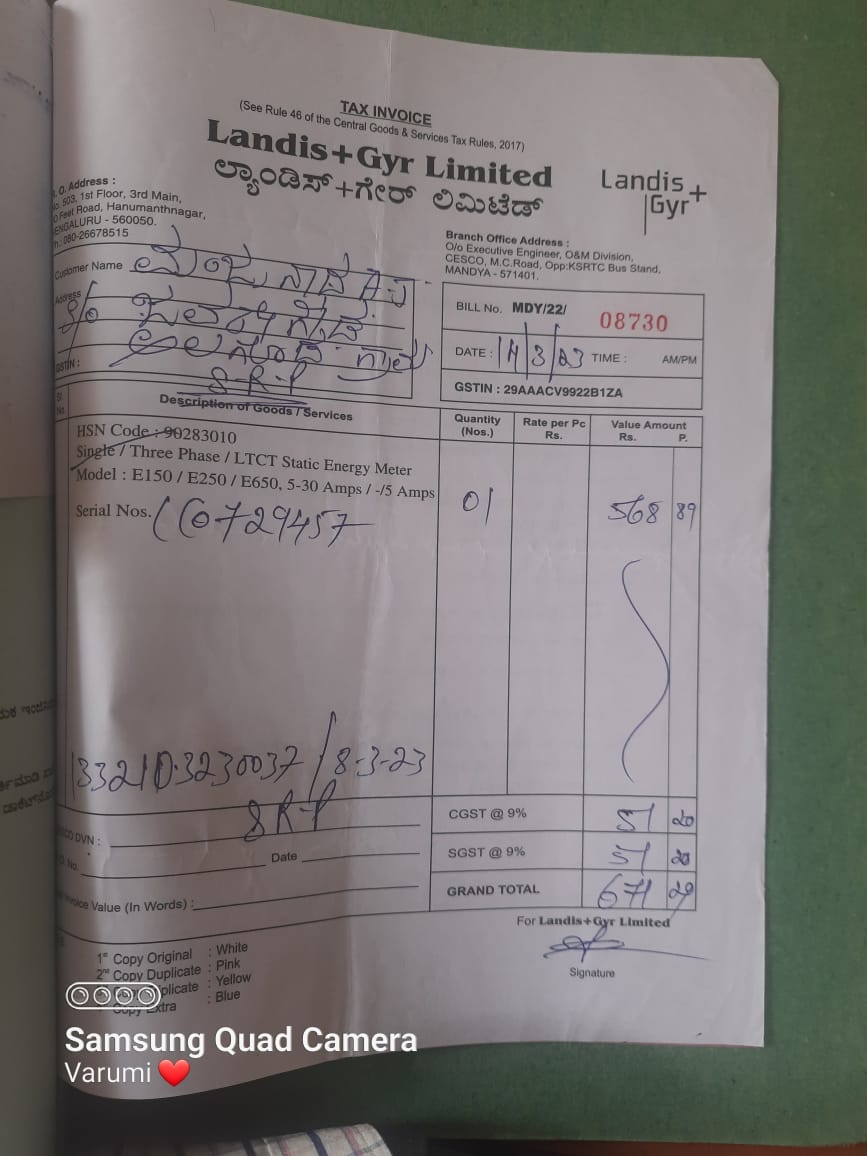 TAX INVOICE
(See Rule 46 of the Central Goods & Services Tax Rules, 2017)
Landis+Gyr Limited
ಲ್ಯಾಂಡಿಸ್+ಗೇರ್ ಲಿಮಿಟೆಡ್
Landis+
Gyr
O. Address :
503, 1st Floor, 3rd Main,
Feet Road, Hanumanthnagar,
ENGALURU - 560050.
080-26678515
Branch Office Address :
O/o Executive Engineer, O&M Division,
CESCO, M.C.Road, Opp:KSRTC Bus Stand,
MANDYA - 571401.
Customer Name
Address
S/o
GSTIN :
S-R-P
BILL No. MDY/22/ 08730
DATE : 14/3/23 TIME : AM/PM
GSTIN : 29AAACV9922B1ZA
Sl. No. Description of Goods / Services Quantity (Nos.) Rate per Pc Rs. Value Amount Rs. P.
HSN Code : 90283010
Single / Three Phase / LTCT Static Energy Meter
Model : E150 / E250 / E650, 5-30 Amps / -/5 Amps
Serial Nos. 01 568 89
8-3-23
SR-P
DVN :
No. Date
Invoice Value (In Words) :
CGST @ 9% 51 20
SGST @ 9% 51 20
GRAND TOTAL 671 29
For Landis+Gyr Limited
Signature
1st Copy Original : White
2nd Copy Duplicate : Pink
plicate : Yellow
Copy Extra : Blue
Samsung Quad Camera
Varumi ❤️